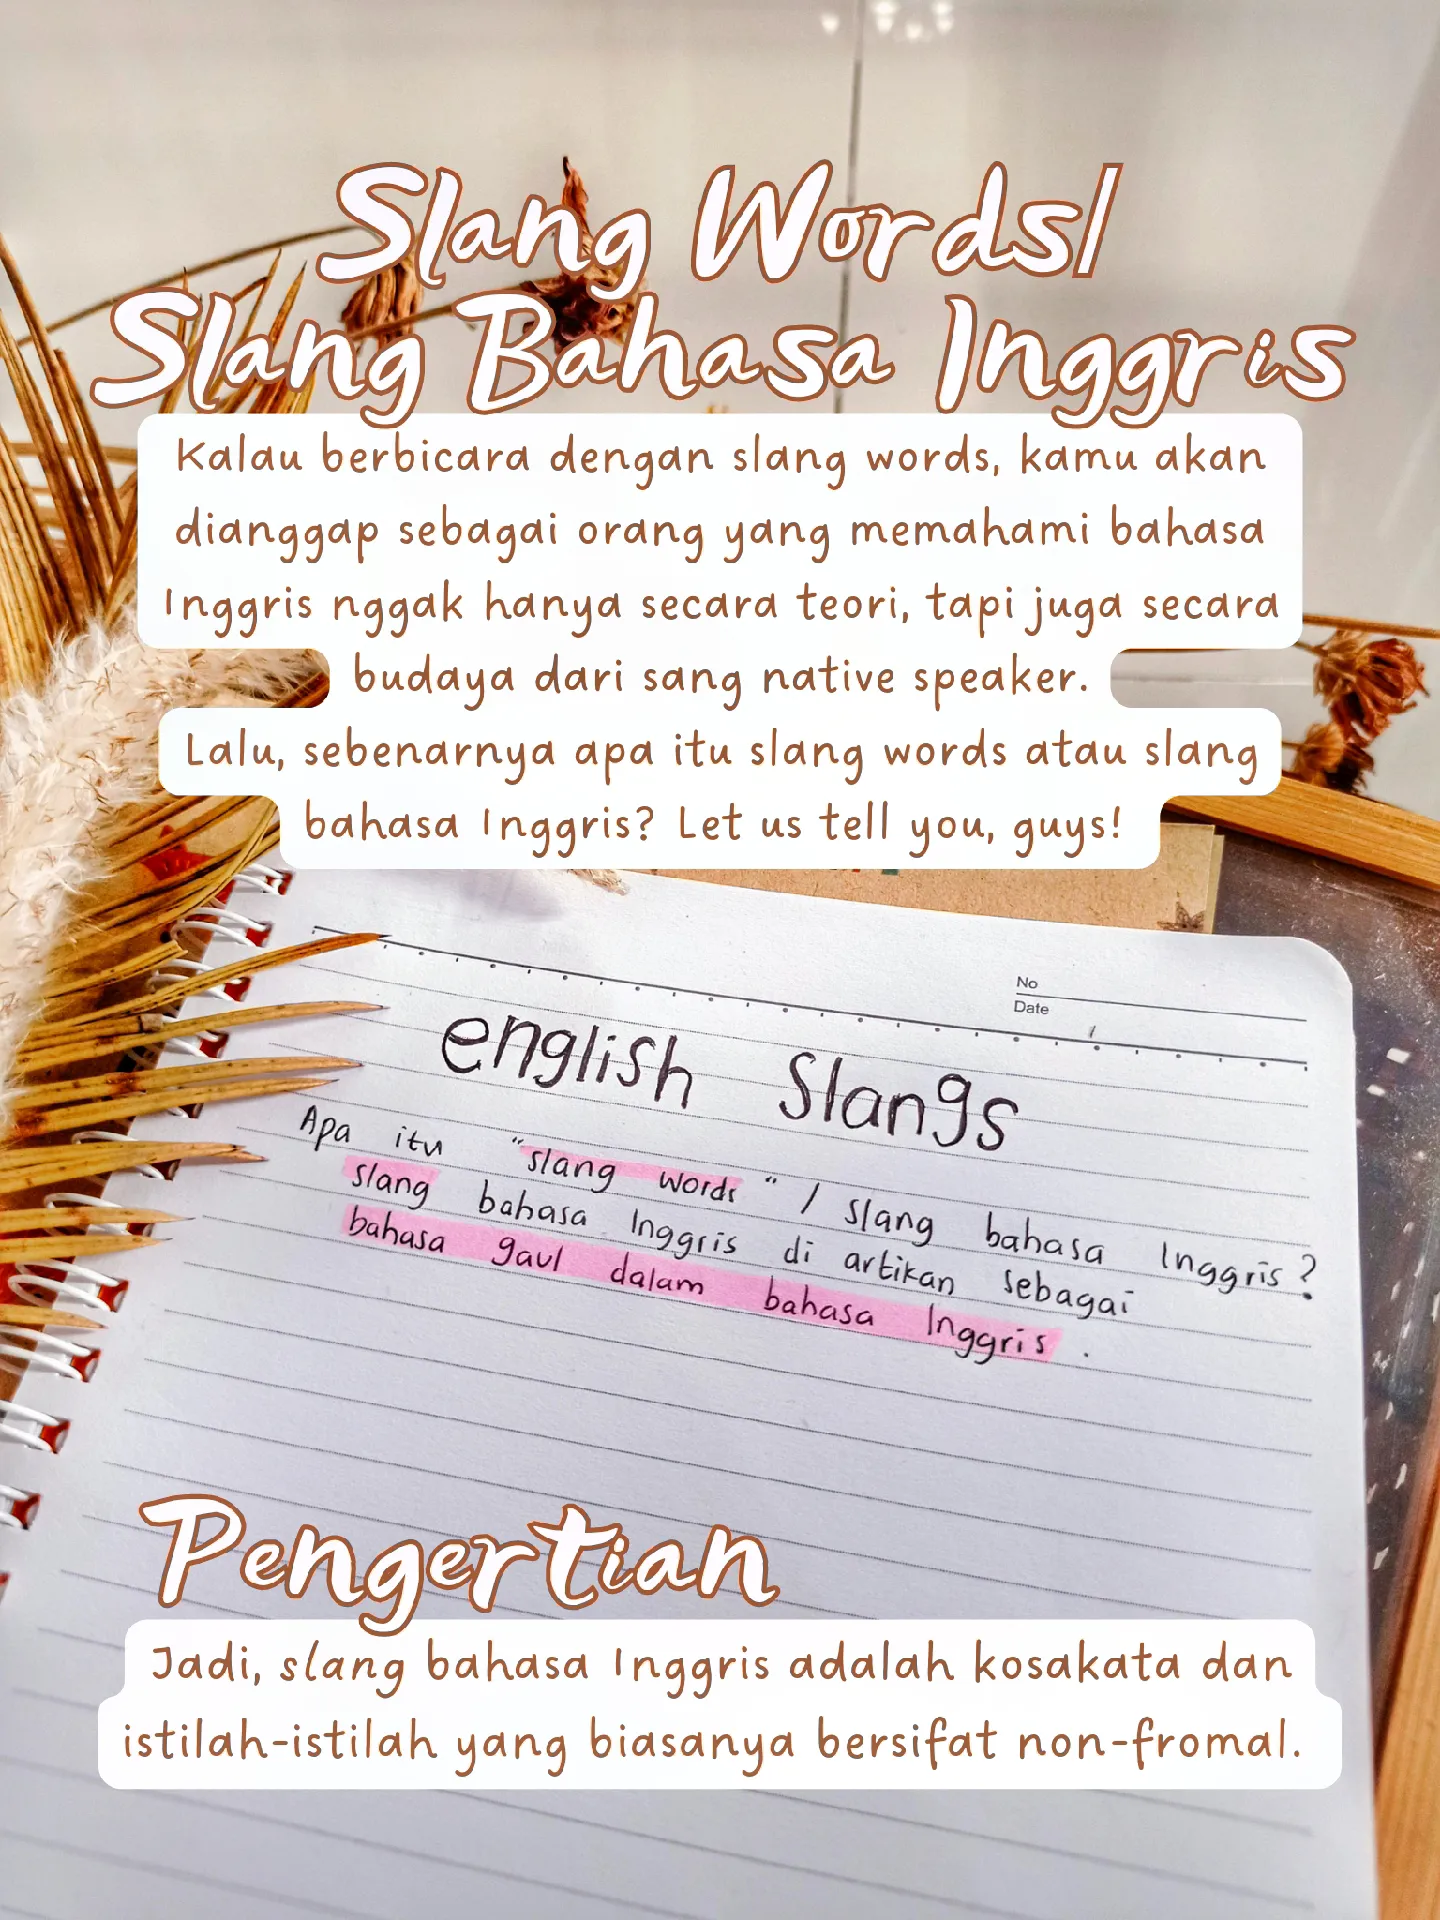 Slang Words/
Slang Bahasa Inggris
Kalau berbicara dengan slang words, kamu akan
dianggap sebagai orang yang memahami bahasa
Inggris nggak hanya secara teori, tapi juga secara
budaya dari sang native speaker.
Lalu, sebenarnya apa itu slang words atau slang
bahasa Inggris? Let us tell you, guys!
No
Date
english Slangs
Apa itu "slang words" / slang bahasa Inggris?
slang bahasa Inggris di artikan sebagai
bahasa gaul dalam bahasa Inggris.
Pengertian
Jadi, slang bahasa Inggris adalah kosakata dan
istilah-istilah yang biasanya bersifat non-fromal.